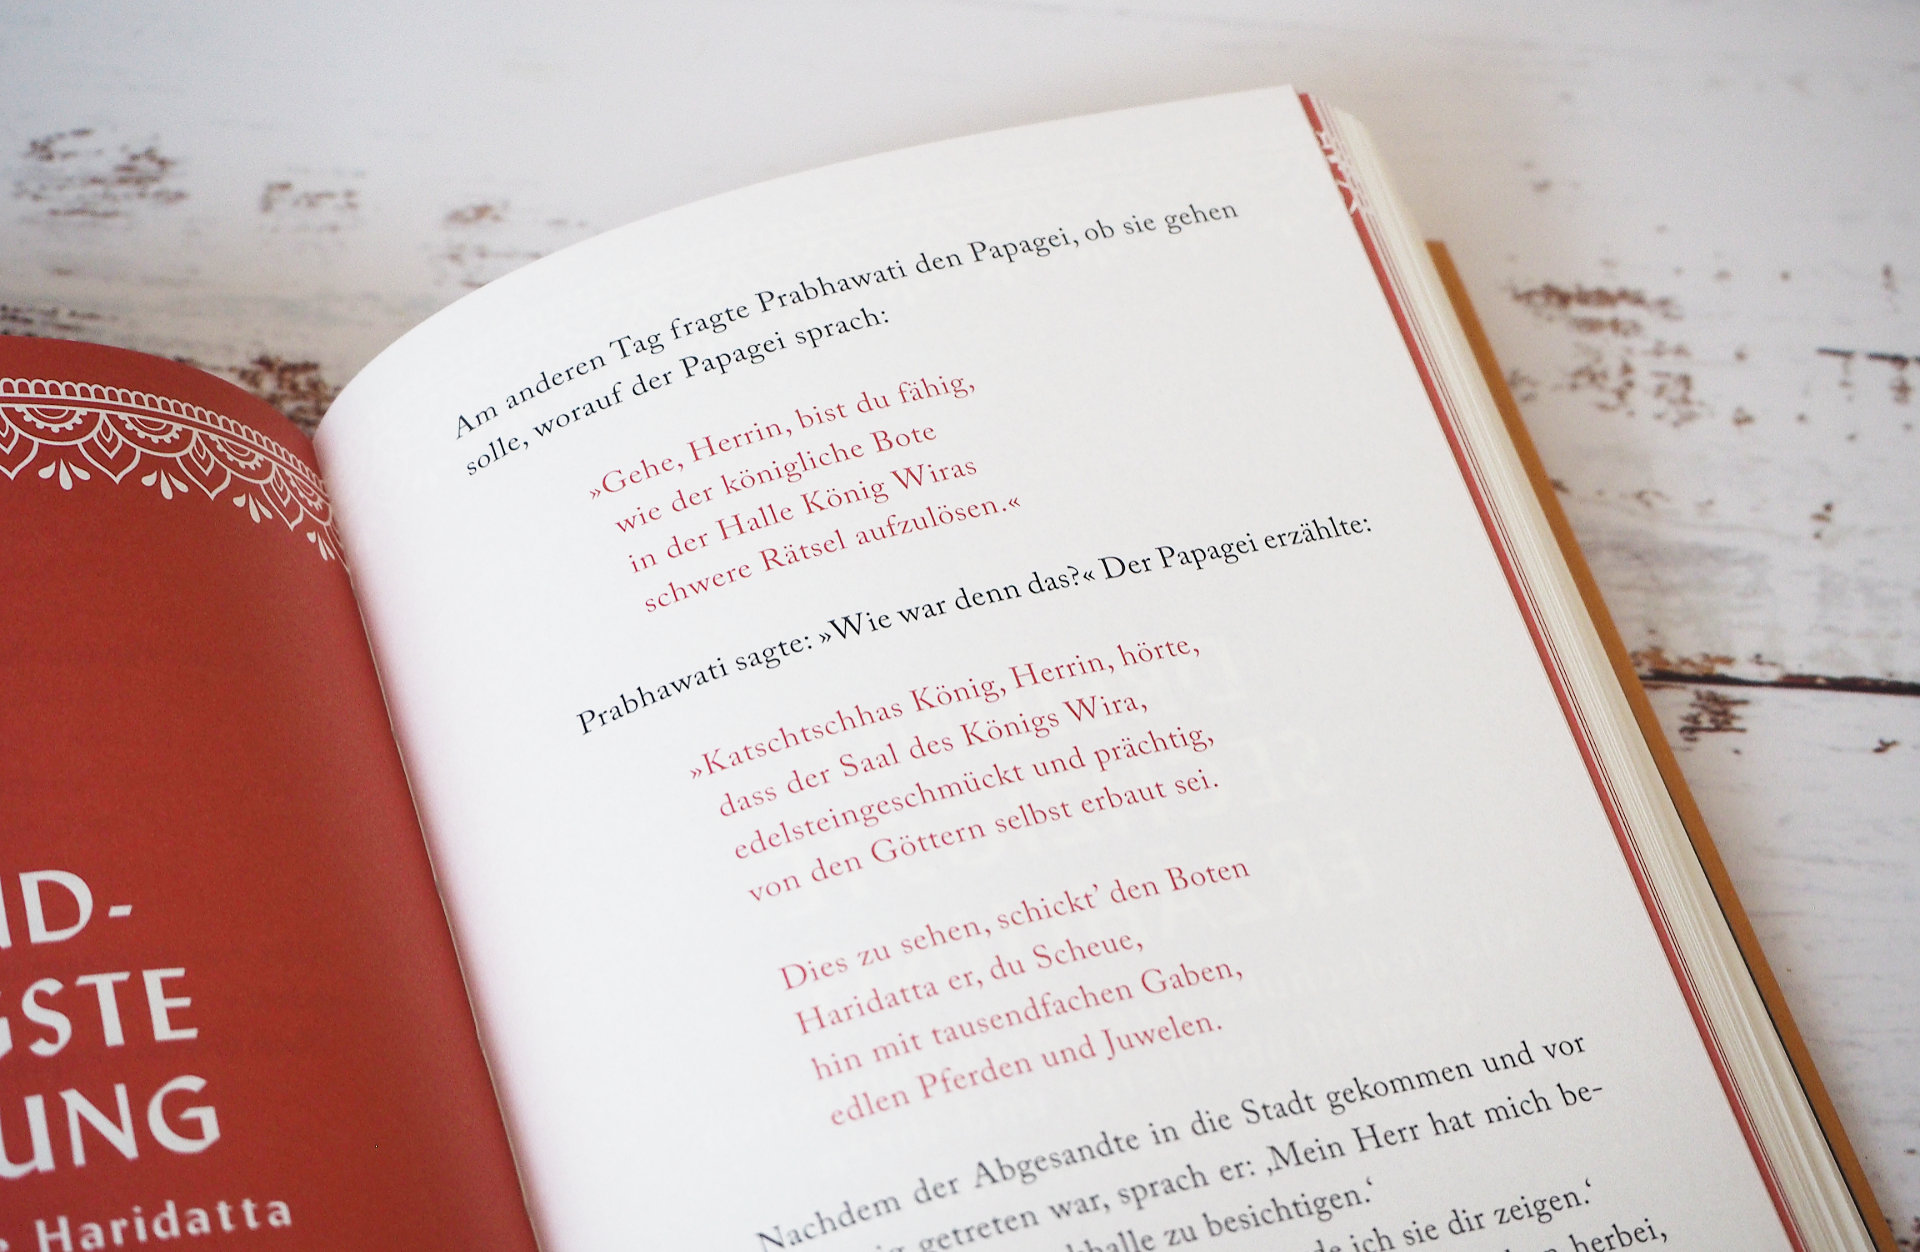 ND-
GSTE
UNG
Haridatta
Am anderen Tag fragte Prabhawati den Papagei, ob sie gehen
solle, worauf der Papagei sprach:
»Gehe, Herrin, bist du fähig,
wie der königliche Bote
in der Halle König Wiras
schwere Rätsel aufzulösen.«
Prabhawati sagte: »Wie war denn das?« Der Papagei erzählte:
»Katschtschhas König, Herrin, hörte,
dass der Saal des Königs Wira,
edelsteingeschmückt und prächtig,
von den Göttern selbst erbaut sei.
Dies zu sehen, schickt’ den Boten
Haridatta er, du Scheue,
hin mit tausendfachen Gaben,
edlen Pferden und Juwelen.
Nachdem der Abgesandte in die Stadt gekommen und vor
getreten war, sprach er: ‚Mein Herr hat mich be-
halle zu besichtigen.‘
ich sie dir zeigen.‘
herbei,